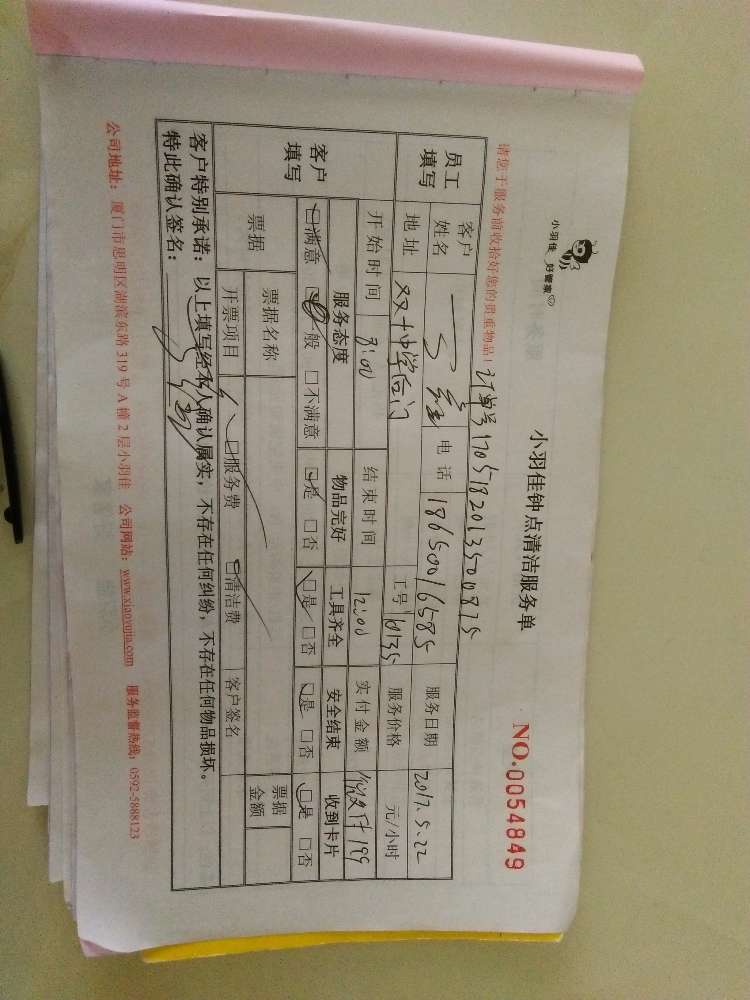 小羽佳 好管家
小羽佳钟点清洁服务单
NO.0054849
请您于服务前收拾好您的贵重物品！
订单号
员工填写 客户姓名 电话 18650016585 服务日期 2017.5.22
地址 双十中学后门 工号 服务价格 元/小时
客户填写 开始时间 8:00 结束时间 12:00 实付金额 199
服务态度 物品完好 工具齐全 安全结束 收到卡片
满意 一般 不满意 是 否 是 否 是 否 是 否
票据 票据名称 票据金额
开票项目 服务费 清洁费 客户签名
客户特别承诺：以上填写经本人确认属实，不存在任何纠纷，不存在任何物品损坏。
特此确认签名：
公司地址：厦门市思明区湖滨东路319号A幢2层小羽佳 公司网站：www.xiaoyujia.com 服务监督热线：0592-5888123